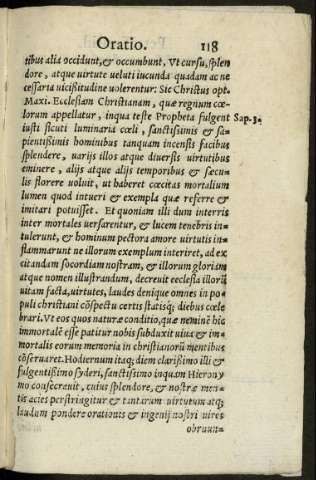 Oratio. 118
tibus alia occidunt, & occumbunt. Vt cursu, splen
dore, atque virtute veluti iucunda quadam ac ne
cessaria uicißitudine uolerentur: Sic Christus opt.
Maxi. Ecclesiam Christianam, quæ regnum cœ-
lorum appellatur, inqua teste Propheta fulgent Sap. 3.
iusti sicuti luminaria cœli, sanctißimis & sa-
pientißimis hominibus tanquam incensis facibus
splendere, uarijs illos atque diuersis uirtutibus
eminere, alijs atque alijs temporibus & sæcu-
lis florere uoluit, ut haberet cœcitas mortalium
lumen quod intueri & exempla quæ referre &
imitari potuisset. Et quoniam illi dum interris
inter mortales uersarentur, & lucem tenebris in-
tulerunt, & hominum pectora amore uirtutis in-
flammarunt ne illorum exemplum interiret, ad ex
citandam socordiam nostram, & illorum gloriam
atque nomen illustrandum, decreuit ecclesia illorũ
uitam facta, uirtutes, laudes denique omnes in po-
puli christiani cõspectu certis statisq; diebus cœle
brari. Vt eos quos naturæ conditio, quæ neminẽ hic
immortalẽ esse patitur nobis subduxit uiua & im-
mortalis eorum memoria in christianorũ mentibus
cõseruaret. Hodiernum itaq; diem clarißimo illi &
fulgentißimo syderi, sanctissimo inquam Hierony
mo consecrauit, cuius splendore, & nostræ men-
tis acies perstringitur & tantarum uirtutum atq;
laudum pondere orationis & ingenij nostri uires
obruun-